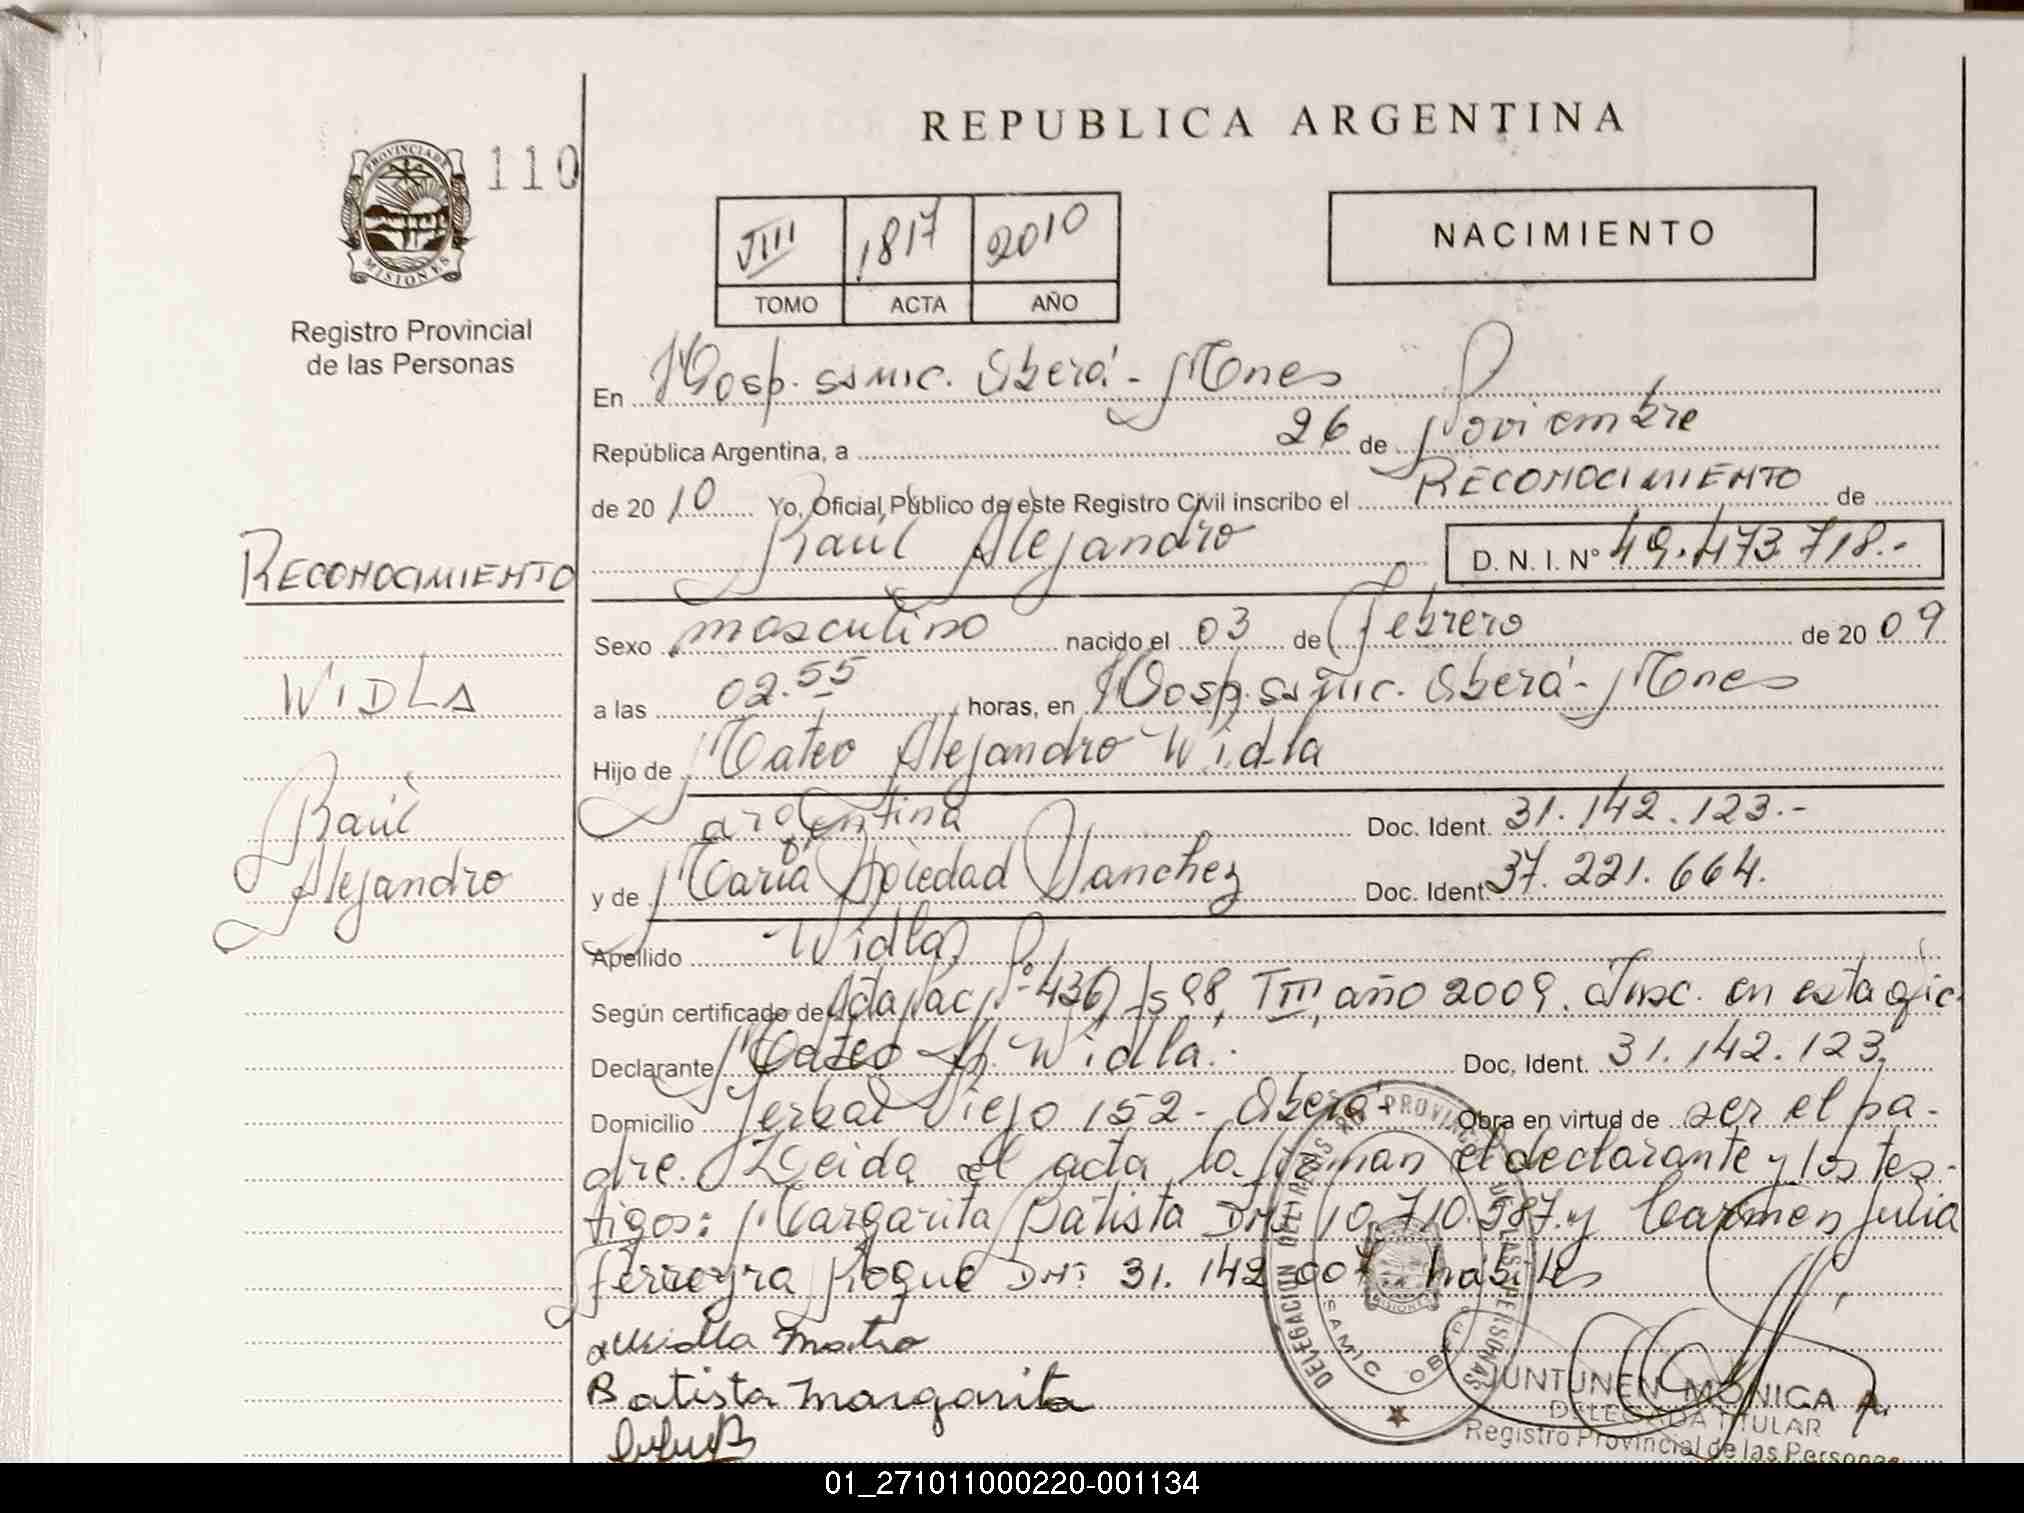 REPUBLICA ARGENTINA
PROVINCIA DE
MISIONES
110
Registro Provincial
de las Personas
VIII 1817 2010
TOMO ACTA AÑO
NACIMIENTO
En Hosp. SAMIC. Oberá - Mnes
República Argentina, a 26 de Noviembre
de 2010 Yo, Oficial Público de este Registro Civil inscribo el RECONOCIMIENTO de
Raúl Alejandro D. N. I. N° 49.473.718.-
RECONOCIMIENTO
WIDLA
Raúl
Alejandro
Sexo masculino nacido el 03 de Febrero de 2009
a las 02.55 horas, en Hosp. SAMIC. Oberá - Mnes
Hijo de Mateo Alejandro Widla
argentina Doc. Ident. 31.142.123.-
y de María Soledad Sanchez Doc. Ident. 37.221.664.
Apellido Widla
Según certificado de Acta Nac. N° 436, Fs 98, TIII, año 2009. Insc. en esta ofic.
Declarante Mateo A. Widla. Doc, Ident. 31.142.123,
Domicilio Yerbal Viejo 152 - Oberá - Obra en virtud de ser el pa-
dre. Leida el acta la firman el declarante y los tes-
tigos: Margarita Batista DNI 10.710.587.y Carmen Julia
Ferreyra Roque DNI 31.142.007 habiles
Widla Mateo
Batista Margarita
DELEGACION DEL REG. PROVINCIAL DE LAS PERSONAS
SAMIC OBERA
MISIONES
JUNTUNEN MONICA A.
DELEGADA TITULAR
Registro Provincial de las Personas
01_271011000220-001134